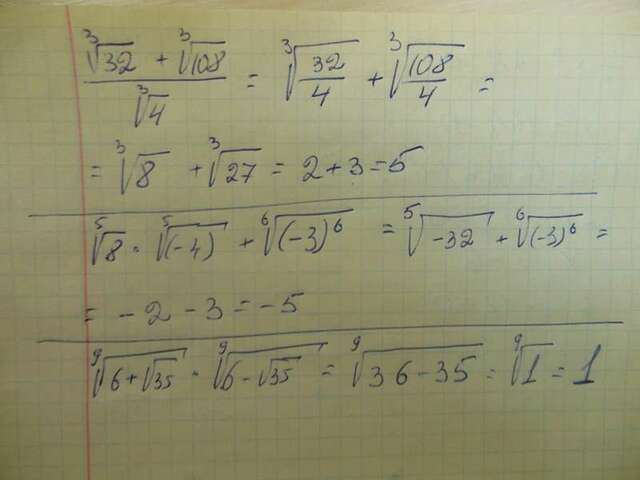 (∛32 + ∛108)/∛4 = ∛(32/4) + ∛(108/4) =
= ∛8 + ∛27 = 2 + 3 = 5
⁵√8 · ⁵√(-4) + ⁶√(-3)⁶ = ⁵√-32 + ⁶√(-3)⁶ =
= -2 - 3 = -5
⁹√(6+√35) · ⁹√(6-√35) = ⁹√(36-35) = ⁹√1 = 1